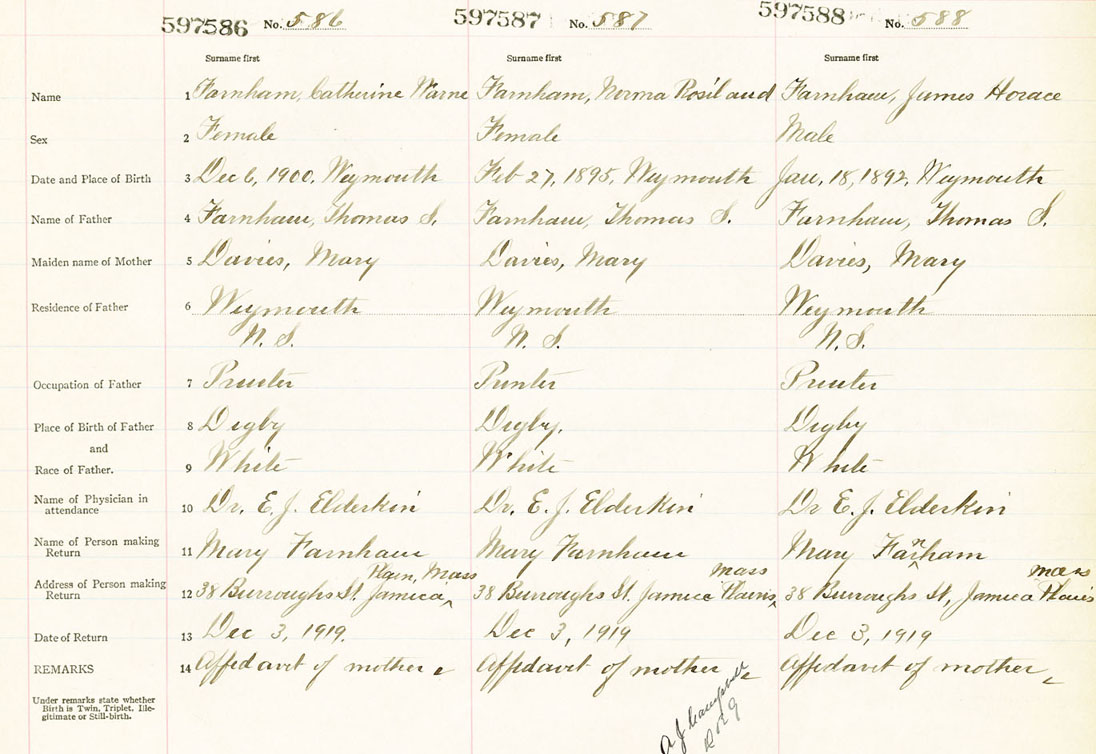 597586 No. 586 597587 No. 587 597588 No. 588
Surname first Surname first Surname first
Name 1 Farnham, Catherine Warne Farnham, Norma Rosiland Farnham, James Horace
Sex 2 Female Female Male
Date and Place of Birth 3 Dec 6, 1900, Weymouth Feb 27, 1895, Weymouth Jan, 18, 1892, Weymouth
Name of Father 4 Farnham, Thomas S. Farnham, Thomas S. Farnham, Thomas S.
Maiden name of Mother 5 Davies, Mary Davies, Mary Davies, Mary
Residence of Father 6 Weymouth Weymouth Weymouth
N. S. N. S. N. S.
Occupation of Father 7 Printer Printer Printer
Place of Birth of Father 8 Digby Digby. Digby
and
Race of Father. 9 White White White
Name of Physician in
attendance 10 Dr. E. J. Elderkin Dr. E. J. Elderkin Dr E. J. Elderkin
Name of Person making
Return 11 Mary Farnham Mary Farnham Mary Farnham
Plain, Mass Mass Mass
Address of Person making
Return 12 38 Burroughs St. Jamica 38 Burroughs St. Jamica Plains 38 Burroughs St, Jamica Plains
Date of Return 13 Dec 3, 1919. Dec 3, 1919 Dec 3, 1919
REMARKS 14 Affidavit of mother Affidavit of mother Affidavit of mother
Under remarks state whether
Birth is Twin, Triplet, Ille-
gitimate or Still-birth.